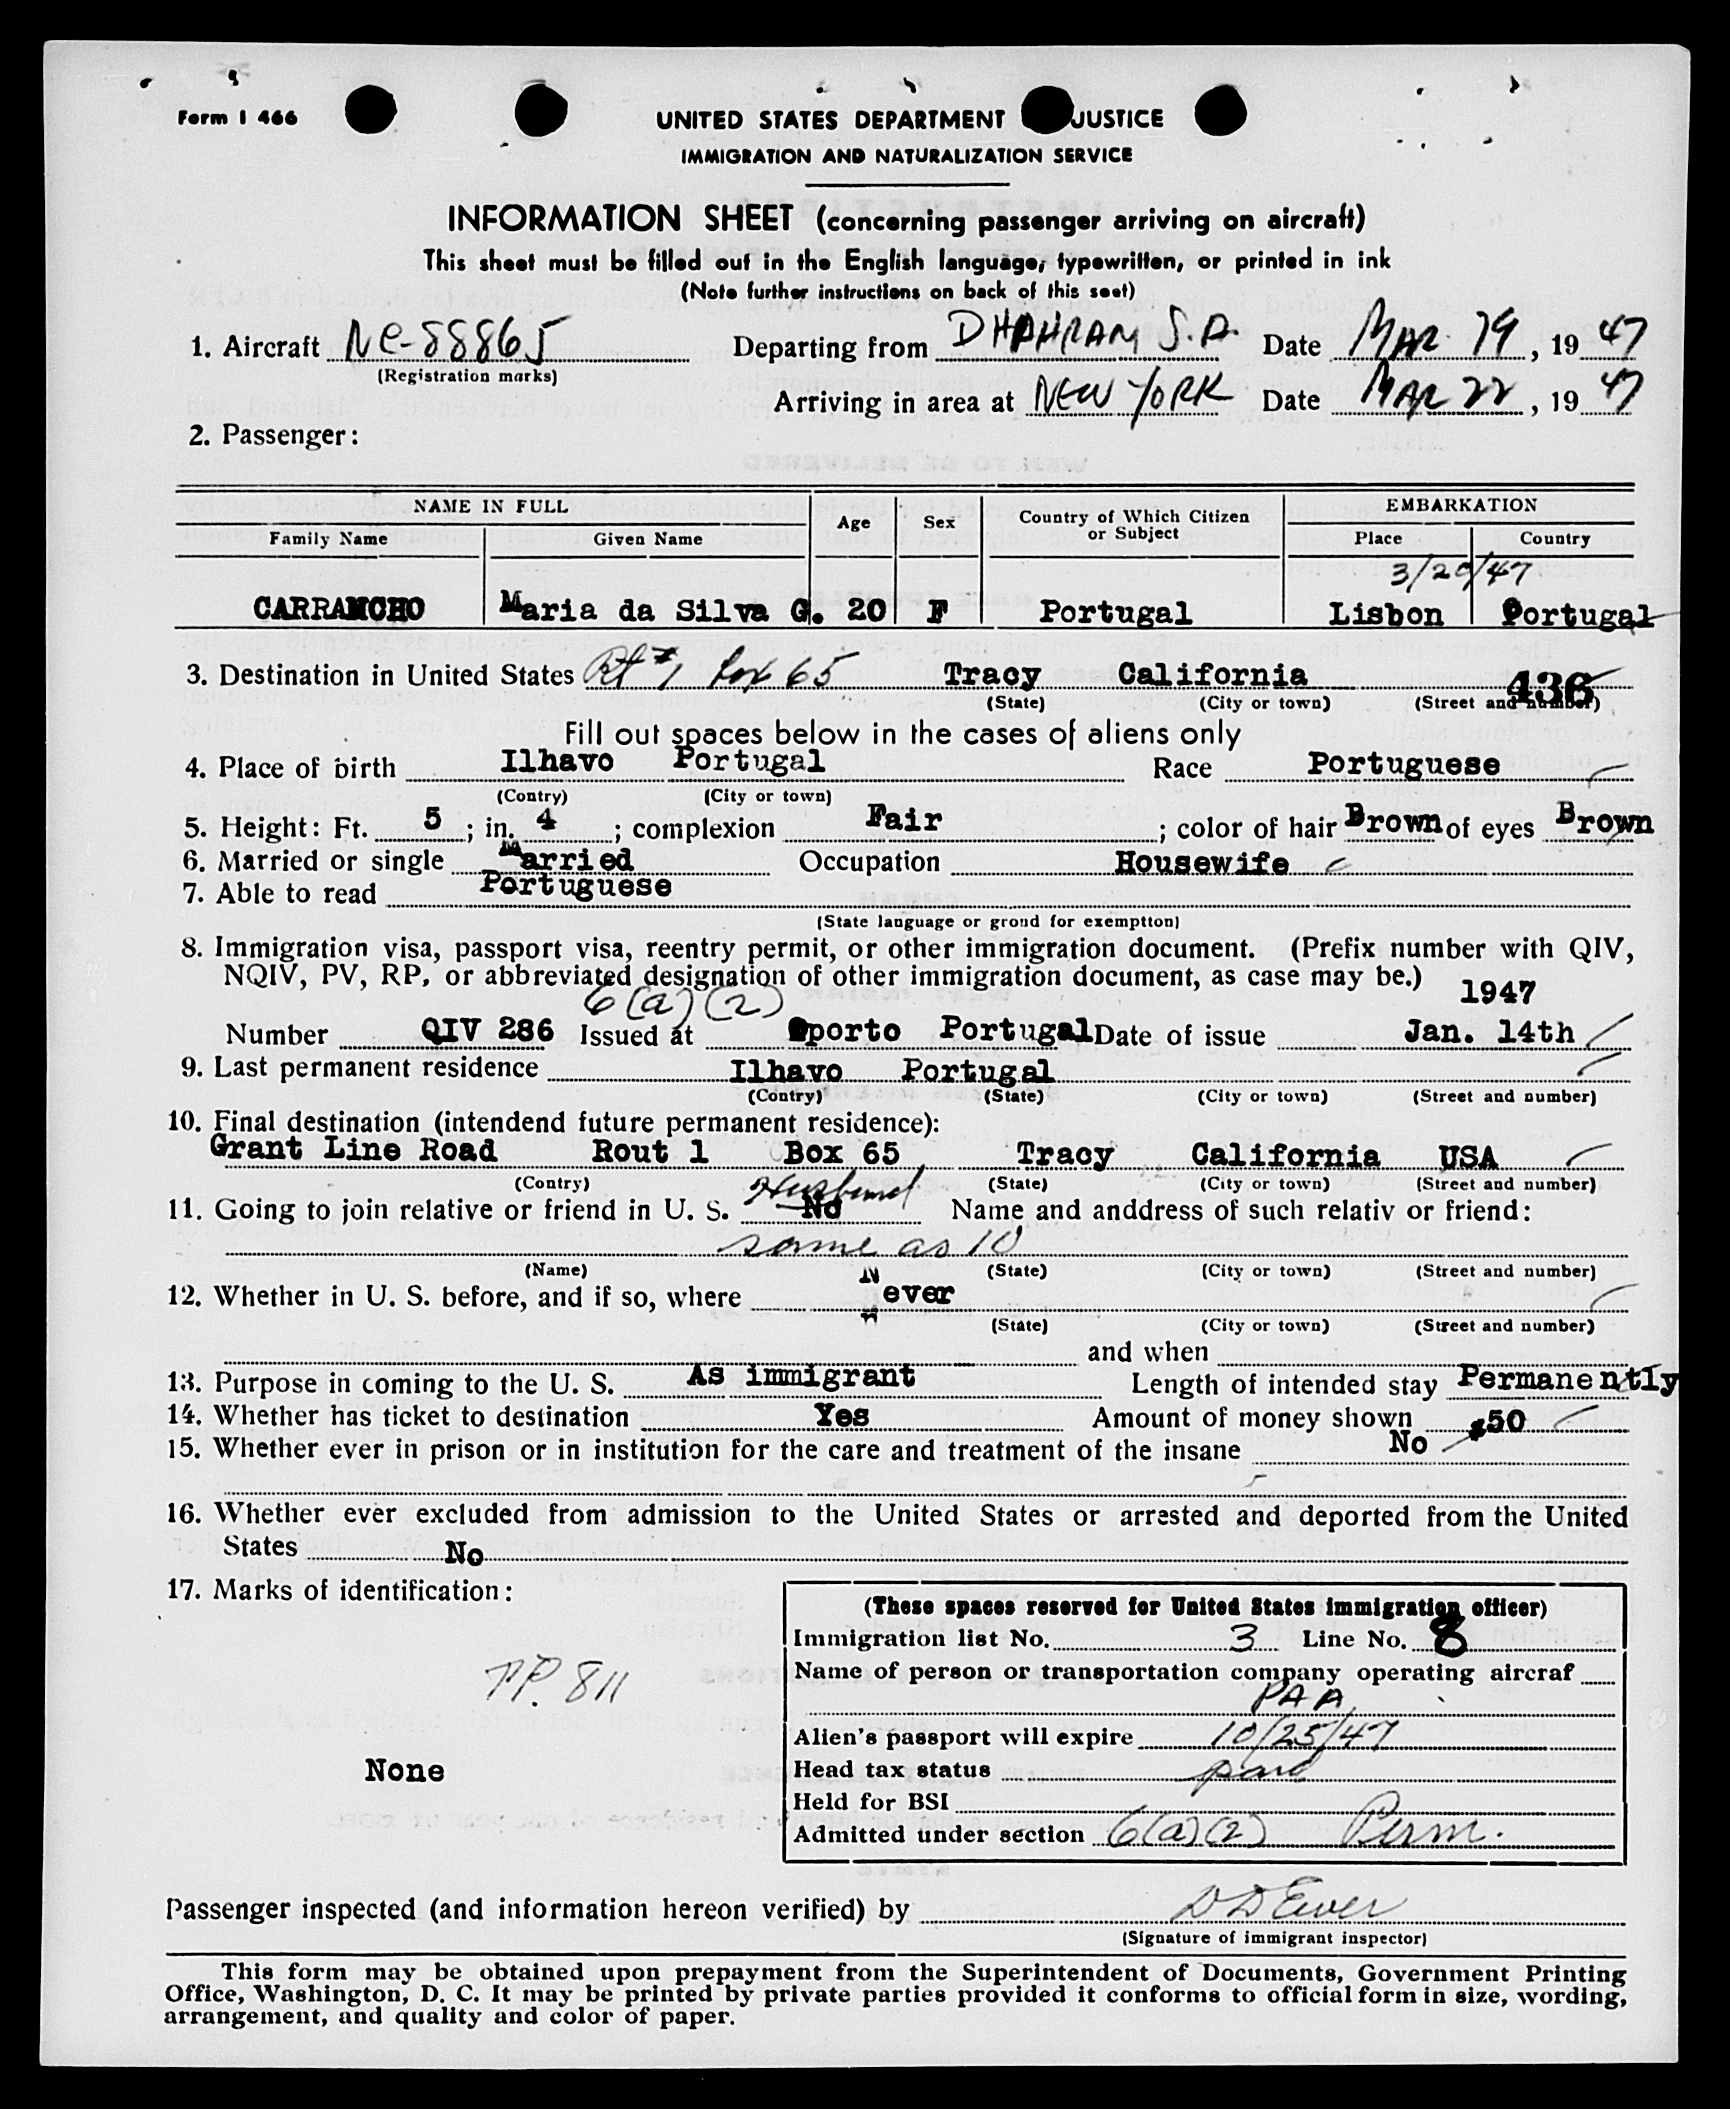 Form I 466
UNITED STATES DEPARTMENT JUSTICE
IMMIGRATION AND NATURALIZATION SERVICE
INFORMATION SHEET (concerning passenger arriving on aircraft)
This sheet must be filled out in the English language, typewritten, or printed in ink
(Note further instructions on back of this seet)
1. Aircraft NC-88865 Departing from DHAHRAN S.A. Date MAR 19, 1947
(Registration marks)
Arriving in area at NEW YORK Date MAR 22, 1947
2. Passenger:
NAME IN FULL Age Sex Country of Which Citizen or Subject EMBARKATION
Family Name Given Name Place Country
3/20/47
CARRANCHO Maria da Silva G. 20 F Portugal Lisbon Portugal
3. Destination in United States Rt #1 Box 65 Tracy California 436
(State) (City or town) (Street and number)
Fill out spaces below in the cases of aliens only
4. Place of birth Ilhavo Portugal Race Portuguese
(Contry) (City or town)
5. Height: Ft. 5; in. 4; complexion Fair; color of hair Brown of eyes Brown
6. Married or single Married Occupation Housewife
7. Able to read Portuguese
(State language or grond for exemptton)
8. Immigration visa, passport visa, reentry permit, or other immigration document. (Prefix number with QIV,
NQIV, PV, RP, or abbreviated designation of other immigration document, as case may be.)
6(a)(2) 1947
Number QIV 286 Issued at Oporto Portugal Date of issue Jan. 14th
9. Last permanent residence Ilhavo Portugal
(Contry) (State) (City or town) (Street and number)
10. Final destination (intendend future permanent residence):
Grant Line Road Rout 1 Box 65 Tracy California USA
(Contry) (State) (City or town) (Street and number)
Husband
11. Going to join relative or friend in U. S. No Name and anddress of such relativ or friend:
same as 10
(Name) (State) (City or town) (Street and number)
12. Whether in U. S. before, and if so, where Never
(State) (City or town) (Street and number)
and when
13. Purpose in coming to the U. S. As immigrant Length of intended stay Permanently
14. Whether has ticket to destination Yes Amount of money shown $50
15. Whether ever in prison or in institution for the care and treatment of the insane No
16. Whether ever excluded from admission to the United States or arrested and deported from the United
States No
17. Marks of identification:
PP. 811
None
(These spaces reserved for United States immigration officer)
Immigration list No. 3 Line No. 8
Name of person or transportation company operating aircraf
PAA
Alien's passport will expire 10/25/47
Head tax status paid
Held for BSI
Admitted under section 6(a)(2) Perm.
Passenger inspected (and information hereon verified) by D D Ewer
(Signature of immigrant inspector)
This form may be obtained upon prepayment from the Superintendent of Documents, Government Printing
Office, Washington, D. C. It may be printed by private parties provided it conforms to official form in size, wording,
arrangement, and quality and color of paper.